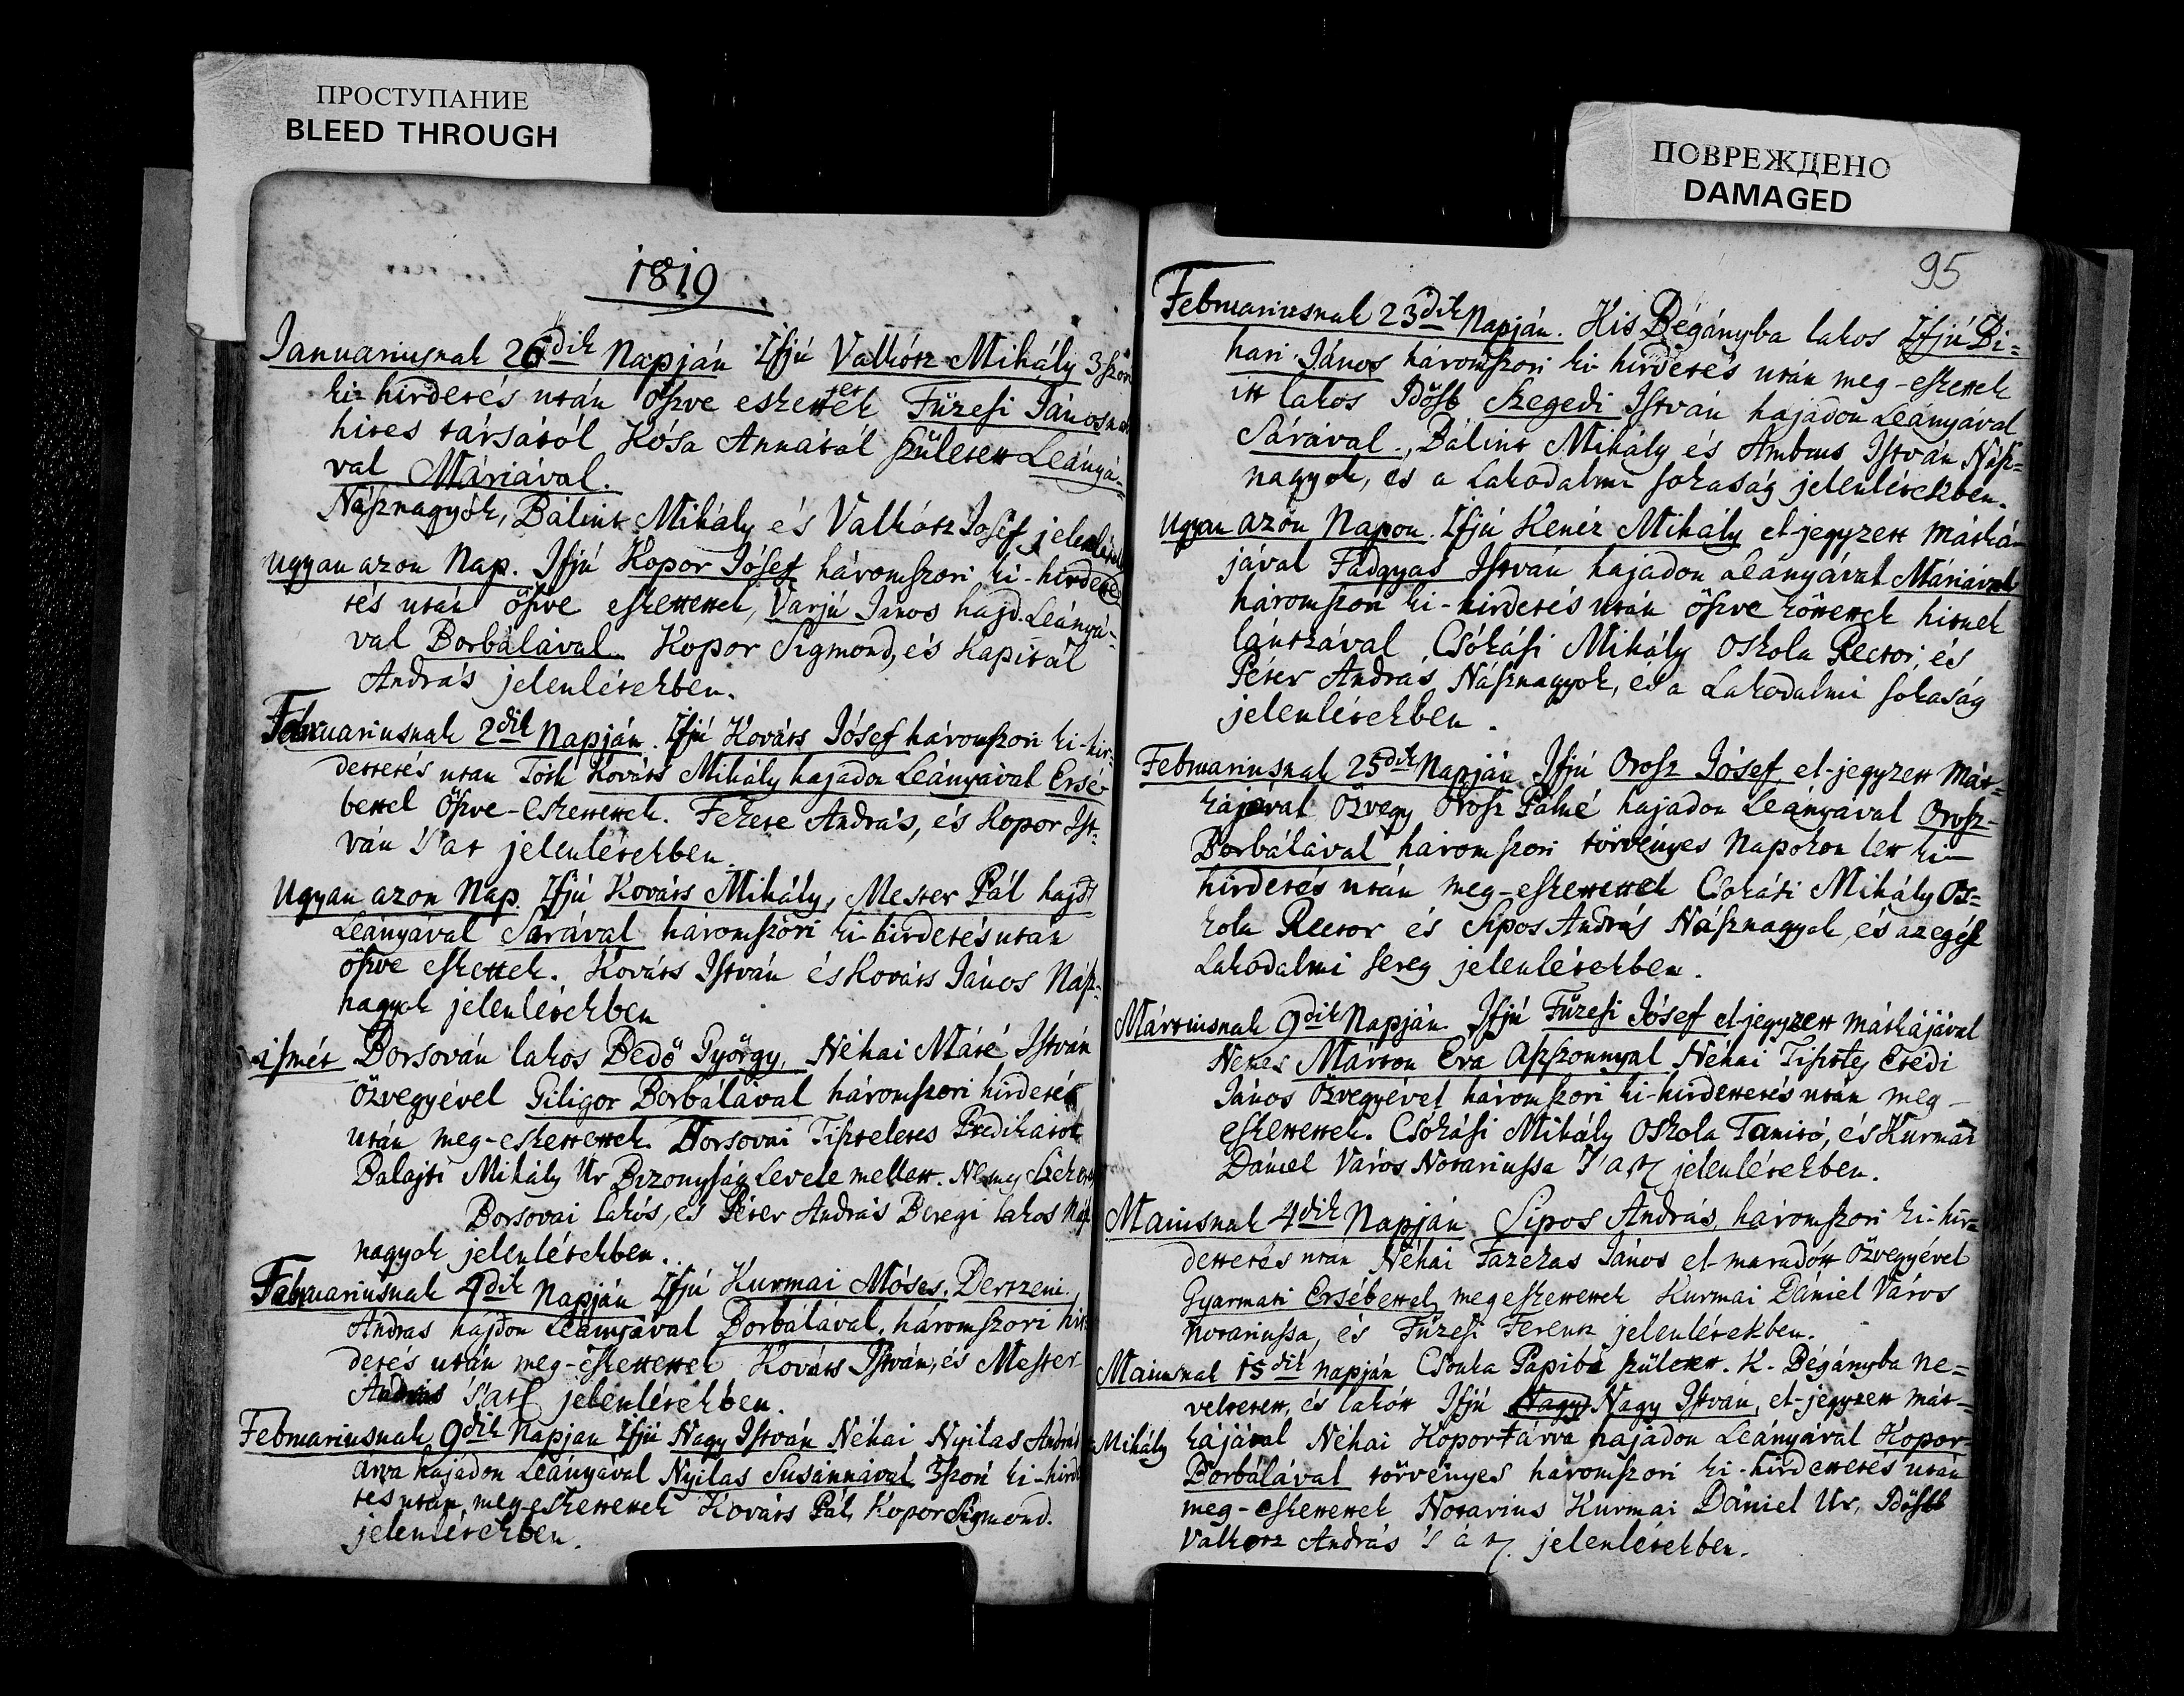 ПРОСТУПАНИЕ
BLEED THROUGH
1819
Januariusnak 26dik Napján Ifjú Valkósz Mihály 3szori
ki-hirdetés után öszve eskettetek Füzesi Jánosnak
hites társától Kósa Annától született Leányá-
val Máriával.
Násznagyok, Bálint Mihály és Valkósz Josef
Ugyan azon Nap. Ifjú Kopor Jósef háromszori ki-hirdete
tés után öszve eskettettek, Varjú János hajd. Leányá-
val Borbálával. Kopor Sigmond, és Kapitál
András jelenlétekben.
Februariusnak 2dik Napján. Ifjú Kováts Jósef háromszori ki-hir-
dettetés utan Tóth Kováts Mihály hajadon Leányával Ersé-
bettel öszve-eskettettek. Fekete András, és Kopor Ist-
ván 's at jelenlétekben.
Ugyan azon Nap. Ifjú Kováts Mihály, Mester Pál hajd
Leányával Sárával háromszori ki-hirdetés utan
öszve eskettek. Kováts István és Kováts János Nász-
nagyok jelenlétekben
ismét Borsován lakos Bedő György, Néhai Máté István
özvegyével Giligor Borbálával háromszori hirdetés
után meg-eskettettek. Borsovai Tiszteletes Predikátor
Balajti Mihály Ur Bizonyság Levele mellett. Nemes
Borsovai lakós, es Péter András Beregi lakos Nász
nagyok jelenlétekben.
Februariusnak 4dik Napján Ifjú Kurmai Móses, Dertzeni
Andras hajdon Leányával Borbálával, háromszori hir
detés után meg-eskettettek Kováts István, és Mester
András 's at jelenlétekben.
Februariusnak 9dik Napjan Ifjú Nagy István Néhai Nyilas András
árva hajadon Leányával Nyilas Susánnával 3szori ki-hirde
tés után meg-eskettettek Kováts Pál, Kopor Sigmond.
jelenlétekben.
ПОВРЕЖДЕНО
DAMAGED
95
Februariusnak 23dik Napján. Kis Bégányba lakos Ifjú Bi=
hari János háromszori ki-hirdetés után meg-eskettek
itt lakos Idősb Szegedi István hajadon Leányával
Sárával, Bálint Mihály és Ambrus István Nász=
nagyok, és a Lakodalmi sokaság jelenlétekben.
Ugyan azon Napon. Ifjú Kenéz Mihály el-jegyzett mátká-
jával Fadgyas István hajadon Leányával Máriával
háromszori ki-hirdetés után öszve köttettek hitnek
lántzával Csókási Mihály Oskola Rector, és
Péter András Násznagyok, és a Lakodalmi sokaság
jelenlétekben.
Februariusnak 25dik Napján Ifjú Orosz Jósef el-jegyzett Mát-
kájával Özvegy Orosz Pálné hajadon Leányával Orosz-
Borbálával háromszori törvényes Napokon lett ki-
hirdetés után meg-eskettettek Csokási Mihály Os=
kola Rector és Sipos András Násznagyok, és az egész
Lakodalmi sereg jelenlétekben.
Mártiusnak 9dik Napján. Ifjú Füzesi Jósef el-jegyzett mátkájával
Nemes Márton Eva Aszszonnyal Néhai Tisztes Csédi
János Özvegyével háromszori ki-hirdettetés után meg-
eskettettek. Csókási Mihály Oskola Tanitó, és Kurmai
Dániel Város Notariussa 's a t jelenlétekben.
Maiusnak 4dik Napján Sipos András, háromszori ki-hir=
dettetés után Néhai Fazekas János el-maradott özvegyével
Gyarmati Ersébettel, megeskettettek Kurmai Dániel Város
Notariussa, és Füzesi Ferentz jelenlétekben.
Maiusnak 15dik napján Csonka Papiba született. K. Bégányba ne=
veltetett, és lakott Ifjú Nagy Nagy István, el-jegyzett mát-
Mihály kájával Néhai Kopor + árva hajadon Leányával Kopor-
Borbálával törvényes háromszori ki-hirdettetés után
meg-eskettettek Notarius Kurmai Dániel Ur, Idősb
Valkosz András 's á t. jelenlétekben.